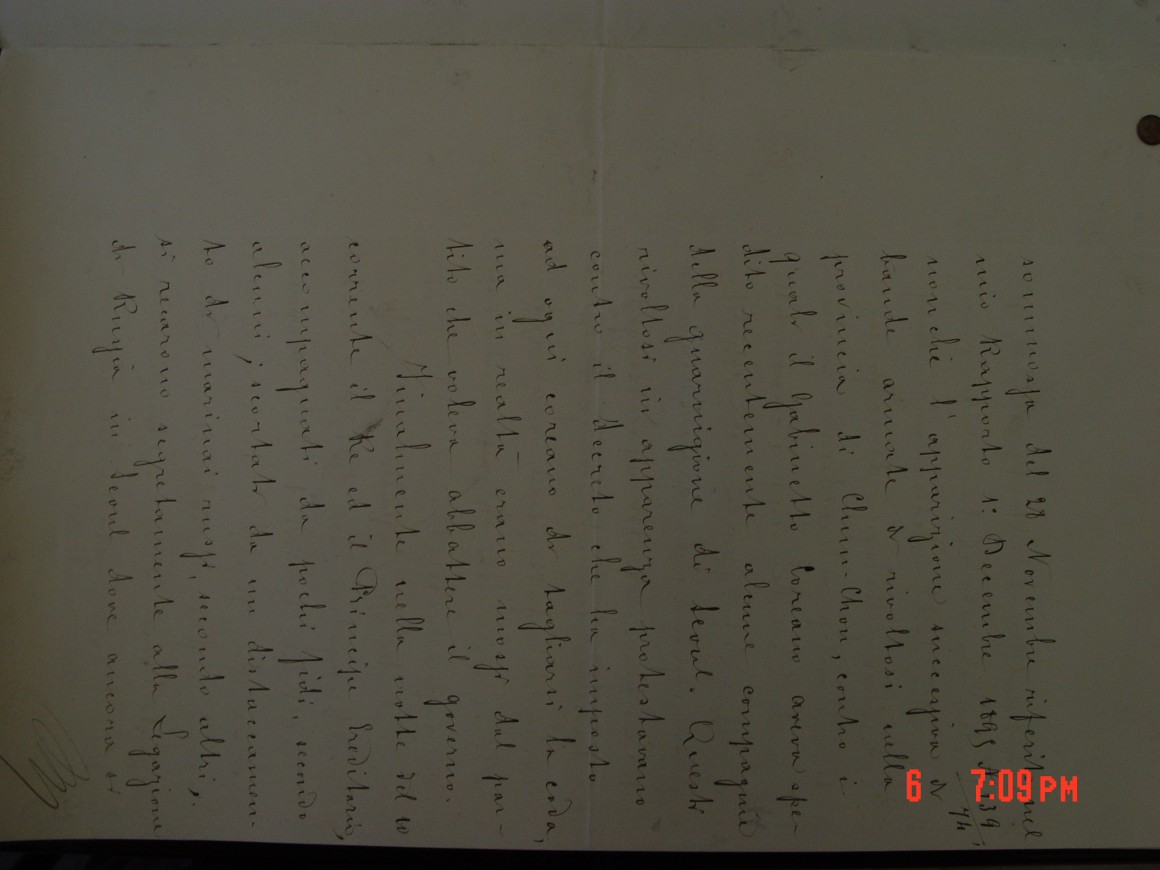 sommossa del 28 Novembre riferita nel
mio Rapporto 1º Decembre 1895 139/74,
nonchè l'apparizione successiva di
bande armate di rivoltosi nella
provincia di Chun-Chon, contro i
quali il Gabinetto Coreano aveva spe-
dito recentemente alcune compagnie
della guarnigione di Seoul. Questi
rivoltosi in apparenza protestavano
contro il decreto che ha imposto
ad ogni coreano di tagliarsi la coda,
ma in realtà erano mossi dal par-
tito che voleva abbattere il governo.
Finalmente nella notte del 10
corrente il Re ed il Principe Ereditario,
accompagnati da pochi fidi, secondo
alcuni, scortati da un distaccamen-
to di marinai russi, secondo altri,
si recarono segretamente alla Legazione
di Russia in Seoul dove ancora si
6 7:09 PM